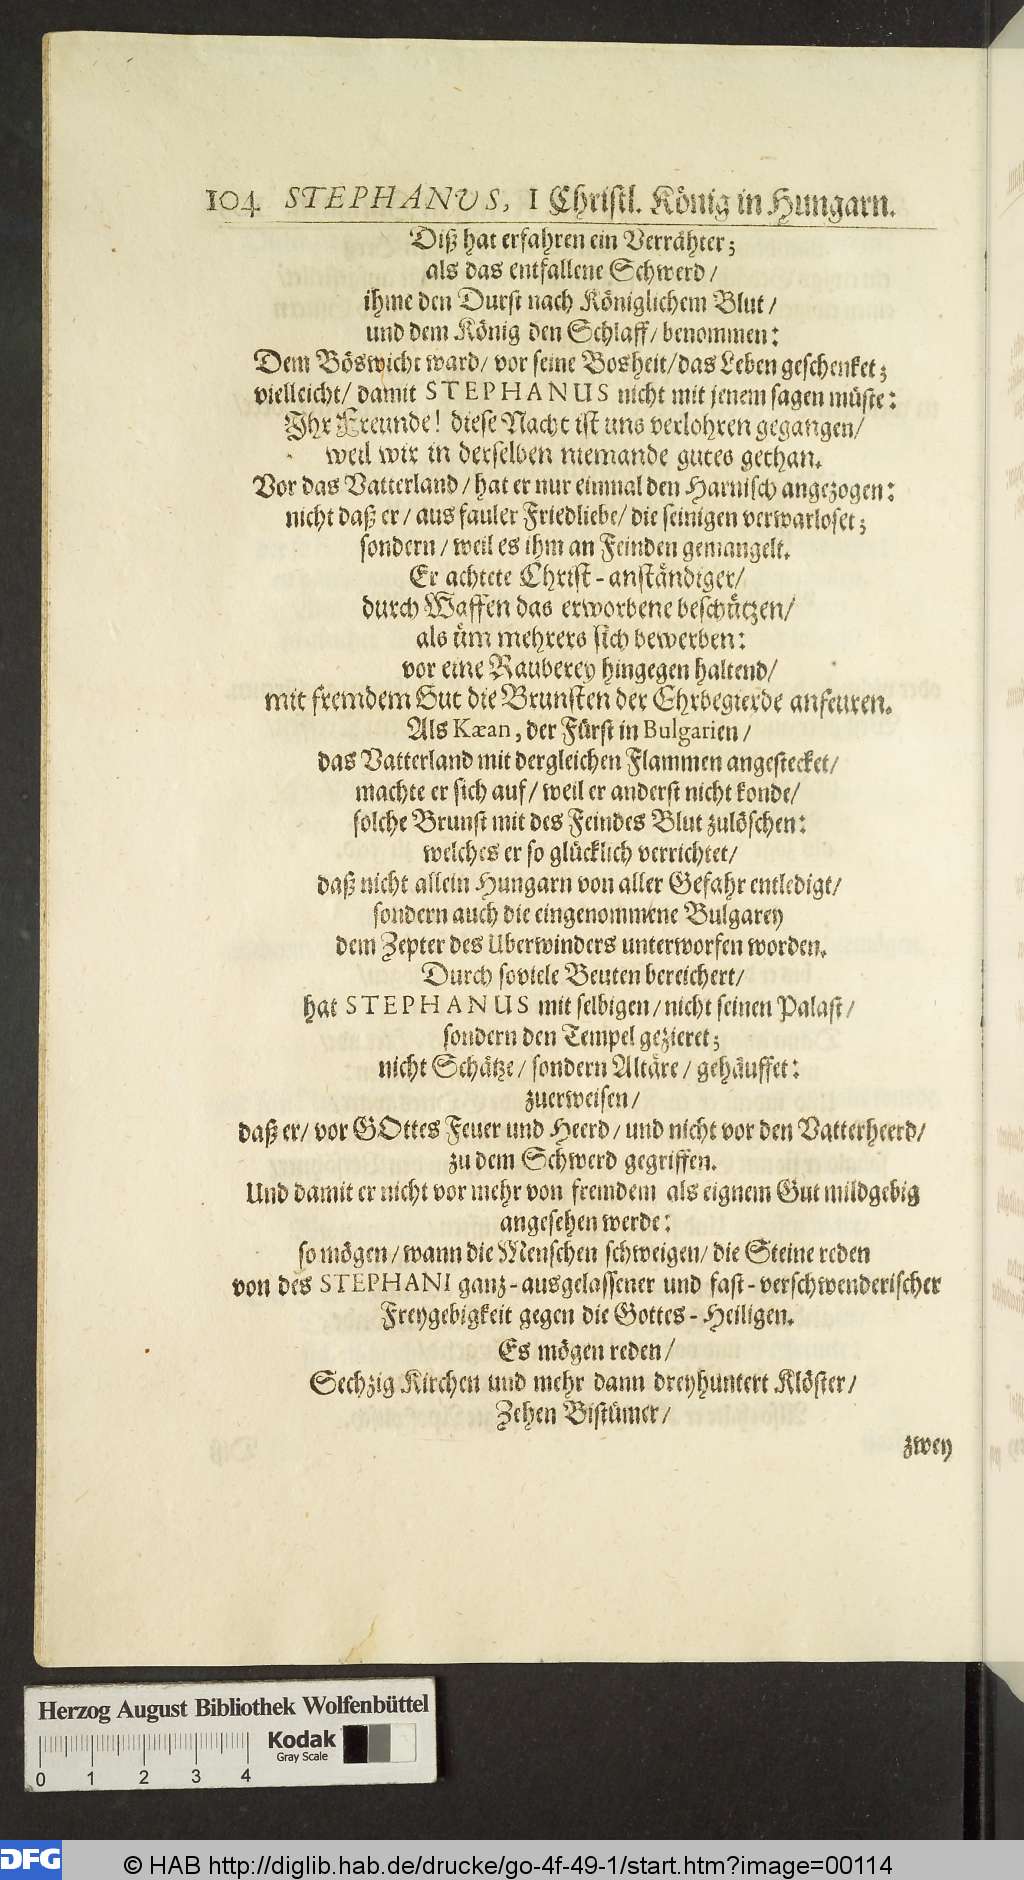 104 STEPHANUS, I Christl. König in Hungarn.
Diß hat erfahren ein Verrähter;
als das entfallene Schwerd/
ihme den Durst nach Königlichem Blut/
und dem König den Schlaff/ benommen:
Dem Böswicht ward/ vor seine Bosheit/ das Leben geschenket;
vielleicht/ damit STEPHANUS nicht mit jenem sagen müste:
Ihr Freunde! diese Nacht ist uns verlohren gegangen/
weil wir in derselben niemande gutes gethan.
Vor das Vatterland/ hat er nur einmal den Harnisch angezogen:
nicht daß er/ aus fauler Friedliebe/ die seinigen verwarloset;
sondern/ weil es ihm an Feinden gemangelt.
Er achtete Christ-anständiger/
durch Waffen das erworbene beschützen/
als üm mehrers sich bewerben:
vor eine Rauberey hingegen haltend/
mit fremdem Gut die Brunsten der Ehrbegierde anfeuren.
Als Kæan, der Fürst in Bulgarien/
das Vatterland mit dergleichen Flammen angestecket/
machte er sich auf/ weil er anderst nicht konde/
solche Brunst mit des Feindes Blut zulöschen:
welches er so glücklich verrichtet/
daß nicht allein Hungarn von aller Gefahr entledigt/
sondern auch die eingenommene Bulgarey
dem Zepter des Uberwinders unterworfen worden.
Durch soviele Beuten bereichert/
hat STEPHANUS mit selbigen/ nicht seinen Palast/
sondern den Tempel gezieret;
nicht Schätze/ sondern Altäre/ gehäuffet:
zuerweisen/
daß er/ vor GOttes Feuer und Heerd/ und nicht vor den Vatterheerd/
zu dem Schwerd gegriffen.
Und damit er nicht vor mehr von fremdem als eignem Gut mildgebig
angesehen werde:
so mögen/ wann die Menschen schweigen/ die Steine reden
von des STEPHANI ganz-ausgelassener und fast-verschwenderischer
Freygebigkeit gegen die Gottes-Heiligen.
Es mögen reden/
Sechzig Kirchen und mehr dann dreyhuntert Klöster/
Zehen Bistümer/
zwey
Herzog August Bibliothek Wolfenbüttel
Kodak
Gray Scale
0 1 2 3 4
DFG
© HAB http://diglib.hab.de/drucke/go-4f-49-1/start.htm?image=00114